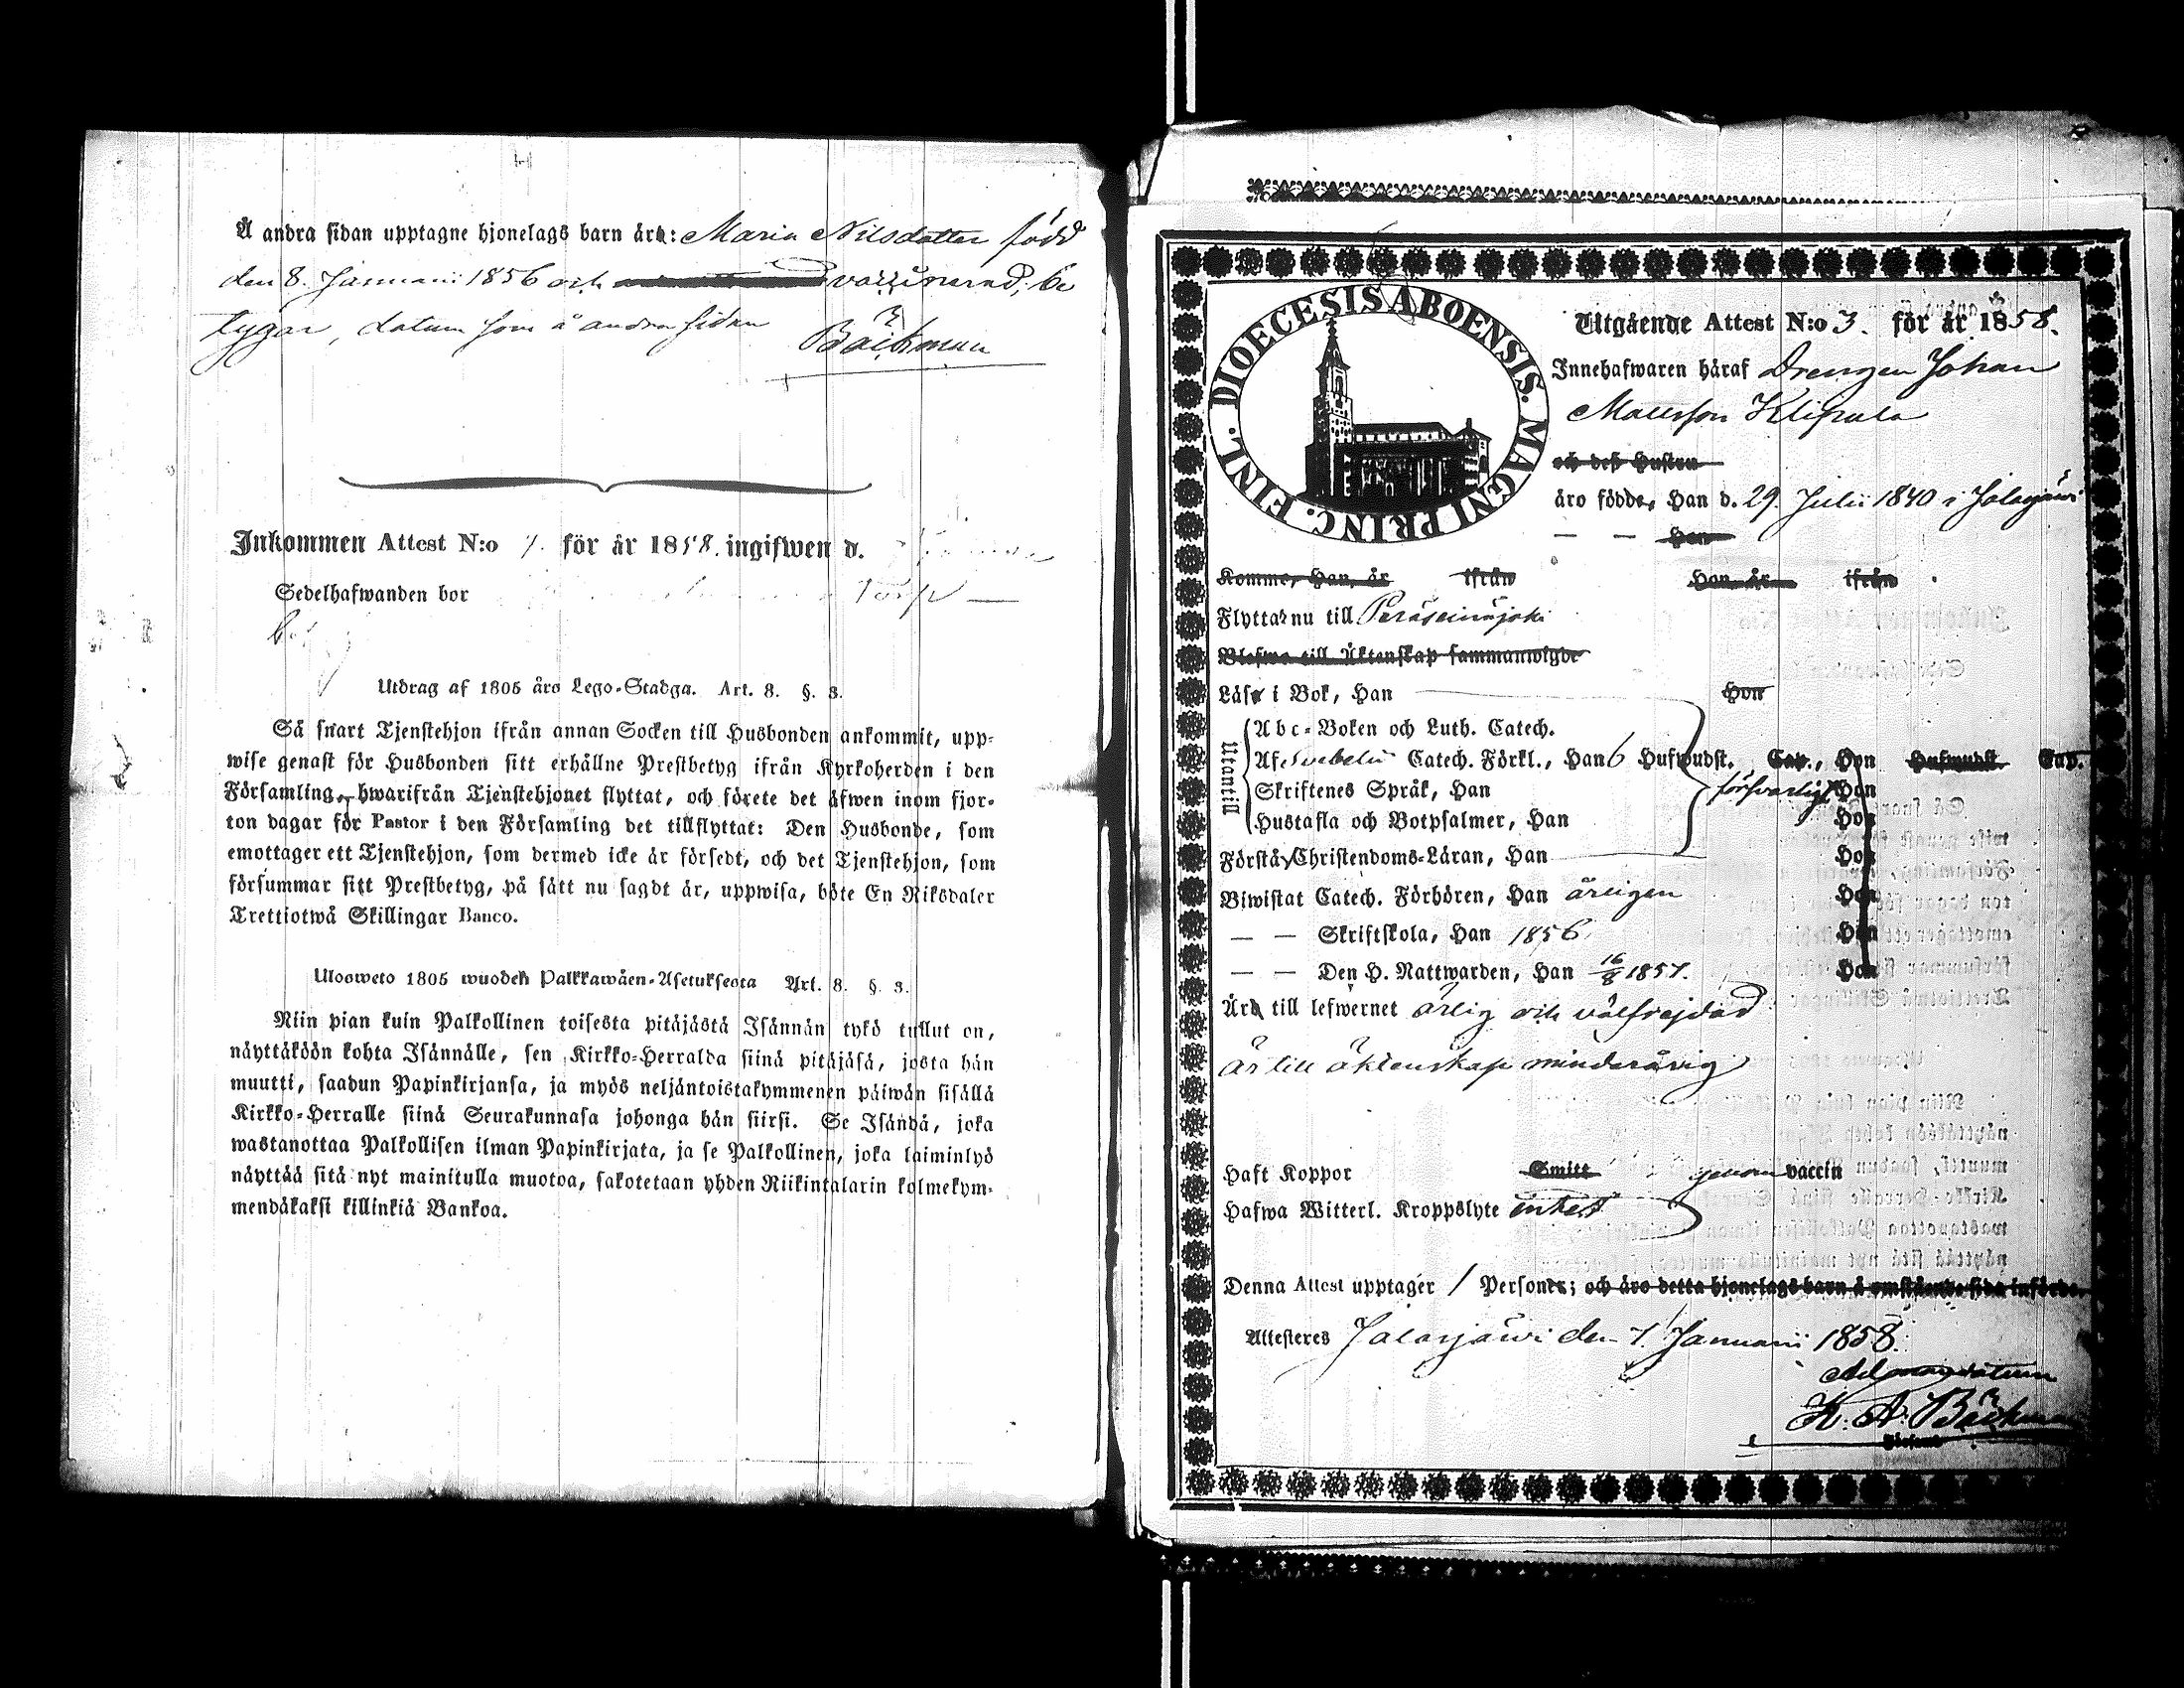 Å andra sidan upptagne hjonelags barn är: Maria Nilsdotter född
den 8. Januarii 1856 och vaccinerad, be
tygar, datum som å andra sidan
Bäckman
Inkommen Attest N:o 7. för år 1858. ingifwen d.
Sedelhafwanden bor torp
Utdrag af 1805 års Lego-Stadga. Art. 8. §. 3.
Så snart Tjenstehjon ifrån annan Socken till Husbonden ankommit, upp-
wise genast för Husbonden sitt erhållne Prestbetyg ifrån Kyrkoherden i den
Församling, hwarifrån Tjenstehjonet flyttat, och förete det äfwen inom fjor-
ton dagar för Pastor i den Församling det tillflyttat: Den Husbonde, som
emottager ett Tjenstehjon, som dermed icke är försedt, och det Tjenstehjon, som
försummar sitt Prestbetyg, på sätt nu sagdt är, uppwisa, böte En Riksdaler
Trettiotwå Skillingar Banco.
Ulosweto 1805 wuoden Palkkawäen-Asetuksesta Art. 8. §. 3.
Niin pian kuin Palkollinen toisesta pitäjästä Isännän tykö tullut on,
näyttäköön kohta Isännälle, sen Kirkko-Herralda siinä pitäjäsä, josta hän
muutti, saadun Papinkirjansa, ja myös neljäntoistakymmenen päiwän sisällä
Kirkko-Herralle siinä Seurakunnasa johonga hän siirsi. Se Isändä, joka
wastanottaa Palkollisen ilman Papinkirjata, ja se Palkollinen, joka laiminlyö
näyttää sitä nyt mainitulla muotoa, sakotetaan yhden Riikintalarin kolmekym-
mendäkaksi killinkiä Bankoa.
DIOECESIS ABOENSIS. MAGNI PRINC. FINL.
Utgående Attest N:o 3. för år 1858.
Innehafwaren häraf Drengen Johan
Mattsson Klipula
och deß Hustru
äro födde, Han d. 29. Julii 1840 i Jalasjärvi
— — Hon
Komme, Han, år ifrån Hon, år ifrån
Flyttar nu till Peräseinäjoki
Blefwo till Äktenskap sammanwigde
Läsa i Bok, Han Hon
Utantill
Abc-Boken och Luth. Catech.
Af Svebelii Catech. Förkl., Han 6 Hufwudst. Cap., Hon Hufwudst. Cap.
Skriftenes Språk, Han försvarligt Hon
Hustafla och Botpsalmer, Han Hon
Förstår Christendoms-Läran, Han Hon
Biwistat Catech. Förhören, Han årligen Hon
— — Skriftskola, Han 1856 Hon
— — Den H. Nattwarden, Han 16/8 1857. Hon
Är till lefwernet ärlig och välfrejdad
är till äktenskap minderårig
Haft Koppor Smitt genom vaccin
Hafwa Witterl. Kroppslyte intet
Denna Attest upptager 1 Person; och äro detta hjonelags barn å omstående sida införde.
Attesteres Jalasjärvi den 7. Januarii 1858.
K. A. Bäckman